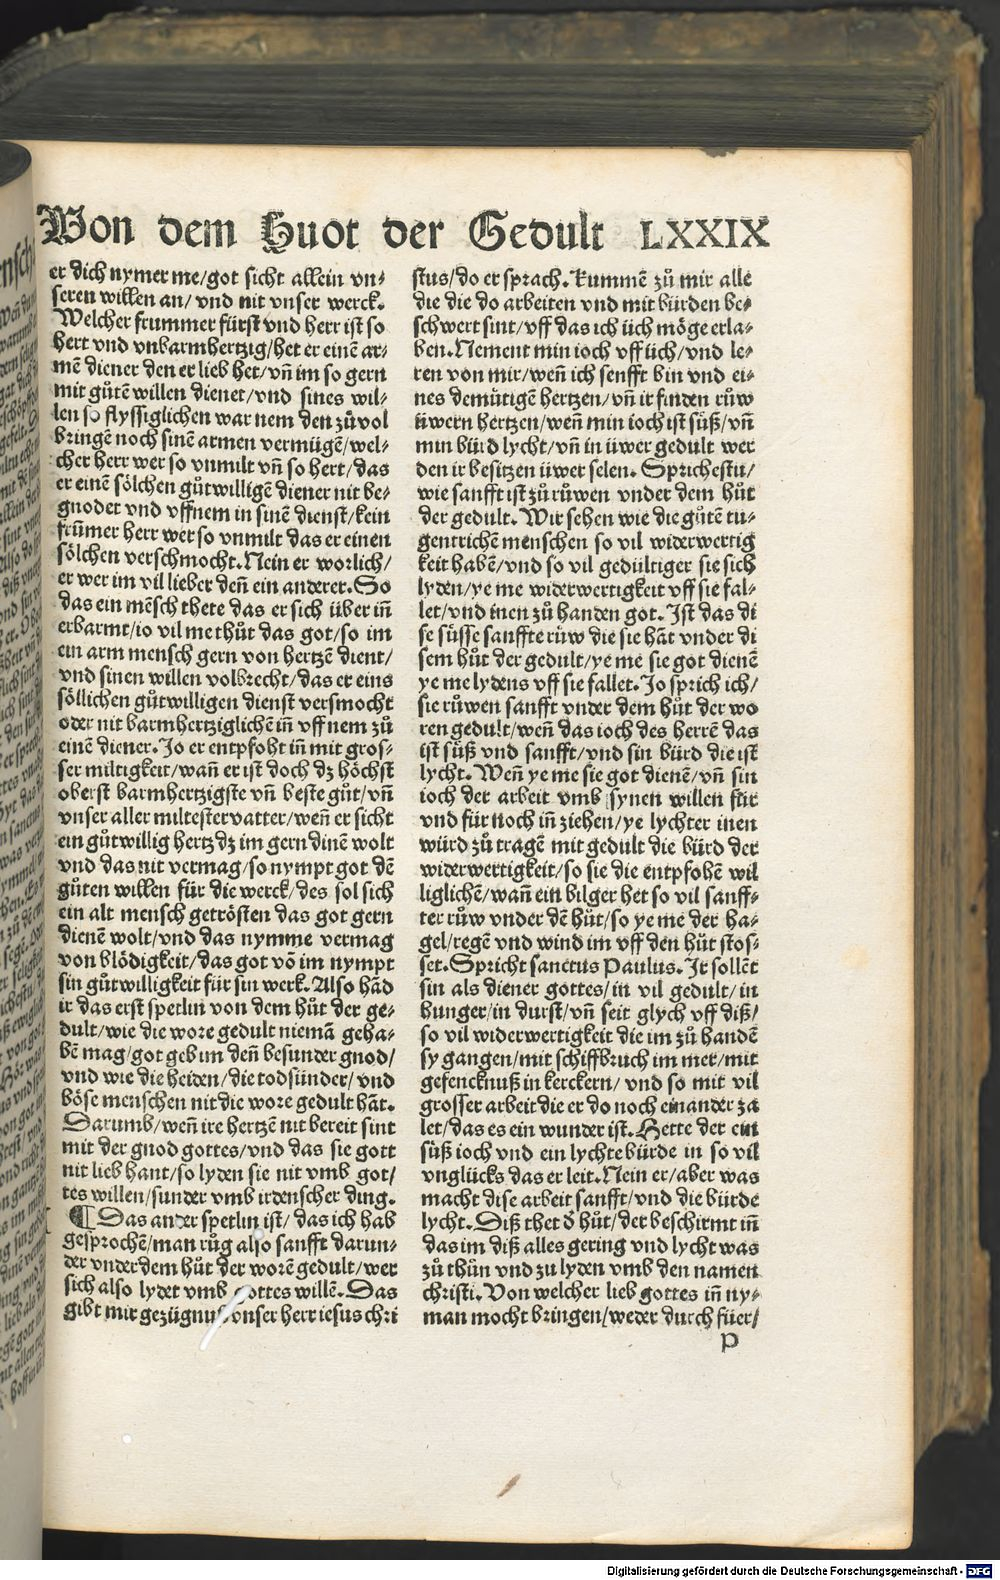 Von dem Huot der Gedult LXXIX
er dich nymer me/got sicht allein vn⸗
seren willen an/ vnd nit vnser werck.
Welcher frummer fürst vnd herr ist so
hert vnd vnbarmhertzig/het er einē ar⸗
mē diener den er lieb het/vn̄ im so gern
mit gůtē willen dienet/vnd sines wil⸗
len so flyssiglichen war nem den zů vol
bringē noch sinē armen vermügē/wel⸗
cher herr wer so vnmilt vn̄ so hert/das
er einē sölchen gůtwilligē diener nit be⸗
gnodet vnd vffnem in sinē dienst/kein
frūmer herr wer so vnmilt das er einen
sölchen verschmocht. Nein er worlich/
er wer im vil lieber den̄ ein anderer. So
das ein mēsch thete das er sich über in̄
erbarmt/io vil me thůt das got/so im
ein arm mensch gern von hertzē dient/
vnd sinen willen volbrecht/das er eins
söllichen gůtwilligen dienst versmocht
oder nit barmhertziglichē in̄ vff nem zů
einē diener. Jo er entpfoht in̄ mit gros⸗
ser miltigkeit/wan̄ er ist doch dz höchst
oberst barmhertzigste vn̄ beste gůt/vn̄
vnser aller miltester vatter/wen̄ er sicht
ein gůtwillig hertz dz im gern dinē wolt
vnd das nit vermag/so nympt got dē
gůten willen für die werck/des sol sich
ein alt mensch getrösten das got gern
dienē wolt/vnd das nymme vermag
von blödigkeit/das got vō im nympt
sin gůtwilligkeit für sin werk. Also hād
ir das erst sperlin von dem hůt der ge⸗
dult/wie die wore gedult niemā geha⸗
bē mag/got geb im den̄ besunder gnod/
vnd wie die heiden/die todsünder/vnd
böse menschen nit die wore gedult hāt.
Darumb/wen̄ ire hertzē nit bereit sint
mit der gnod gottes/vnd das sie gott
nit lieb hant/so lyden sie nit vmb got/
tes willen/sunder vmb irdenscher ding.
¶ Das ander sperlin ist/das ich hab
gesprochē/man růg also sanfft darun⸗
der vnder dem hůt der worē gedult/wer
sich also lydet vmb gottes willē. Das
gibt mir gezügnuß vnser herr iesus chri
stus/do er sprach. Kummē zů mir alle
die die do arbeiten vnd mit bürden be⸗
schwert sint/vff das ich üch möge erla⸗
ben. Nement min ioch vff üch/vnd le⸗
ren von mir/wen̄ ich senfft bin vnd ei⸗
nes demütigē hertzen/vn̄ ir finden růw
üwern hertzen/wen̄ min ioch ist süß/vn̄
min bürd lycht/vn̄ in üwer gedult wer
den ir besitzen üwer selen. Sprichestu/
wie sanfft ist zů růwen vnder dem hůt
der gedult. Wir sehen wie die gůtē tu⸗
gentrichē menschen so vil widerwertig
keit habē/vnd so vil gedültiger sie sich
lyden/ye me widerwertigkeit vff sie fal⸗
let/vnd inen zů handen got. Jst das di
se süsse sanffte růw die sie hāt vnder di
sem hůt der gedult/ye me sie got dienē
ye me lydens vff sie fallet. Jo sprich ich/
sie růwen sanfft vnder dem hůt der wo
ren gedult/wen̄ das ioch des herrē das
ist süß vnd sanfft/vnd sin bürd die ist
lycht. Wen̄ ye me sie got dienē/vn̄ sin
ioch der arbeit vmb synen willen für
vnd für noch in̄ ziehen/ye lychter inen
würd zů tragē mit gedult die bürd der
widerwertigkeit/so sie die entpfohē wil
liglichē/wan̄ ein bilger het so vil sanff⸗
ter růw vnder dē hůt/so ye me der ha⸗
gel/regē vnd wind im vff den hůt stos⸗
set. Spricht sanctus Paulus. Jr sollēt
sin als diener gottes/in vil gedult/in
hunger/in durst/vn̄ seit glych vff diß/
so vil widerwertigkeit die im zů handē
sy gangen/mit schiffbruch im mer/mit
gefencknuß in kerckern/ vnd so mit vil
grosser arbeit die er do noch einander za
let/das es ein wunder ist. Hette der ein
süß ioch vnd ein lychte bürde in so vil
vnglücks das er leit. Nein er/aber was
macht dise arbeit sanfft/vnd die bürde
lycht. Diß thet d̓ hůt/der beschirmt in̄
das im diß alles gering vnd lycht was
zů thůn vnd zu lyden vmb den namen
christi. Von welcher lieb gottes in̄ ny⸗
man mocht bringen/weder durch füer/
p
Digitalisierung gefördert durch die Deutsche Forschungsgemeinschaft - DFG